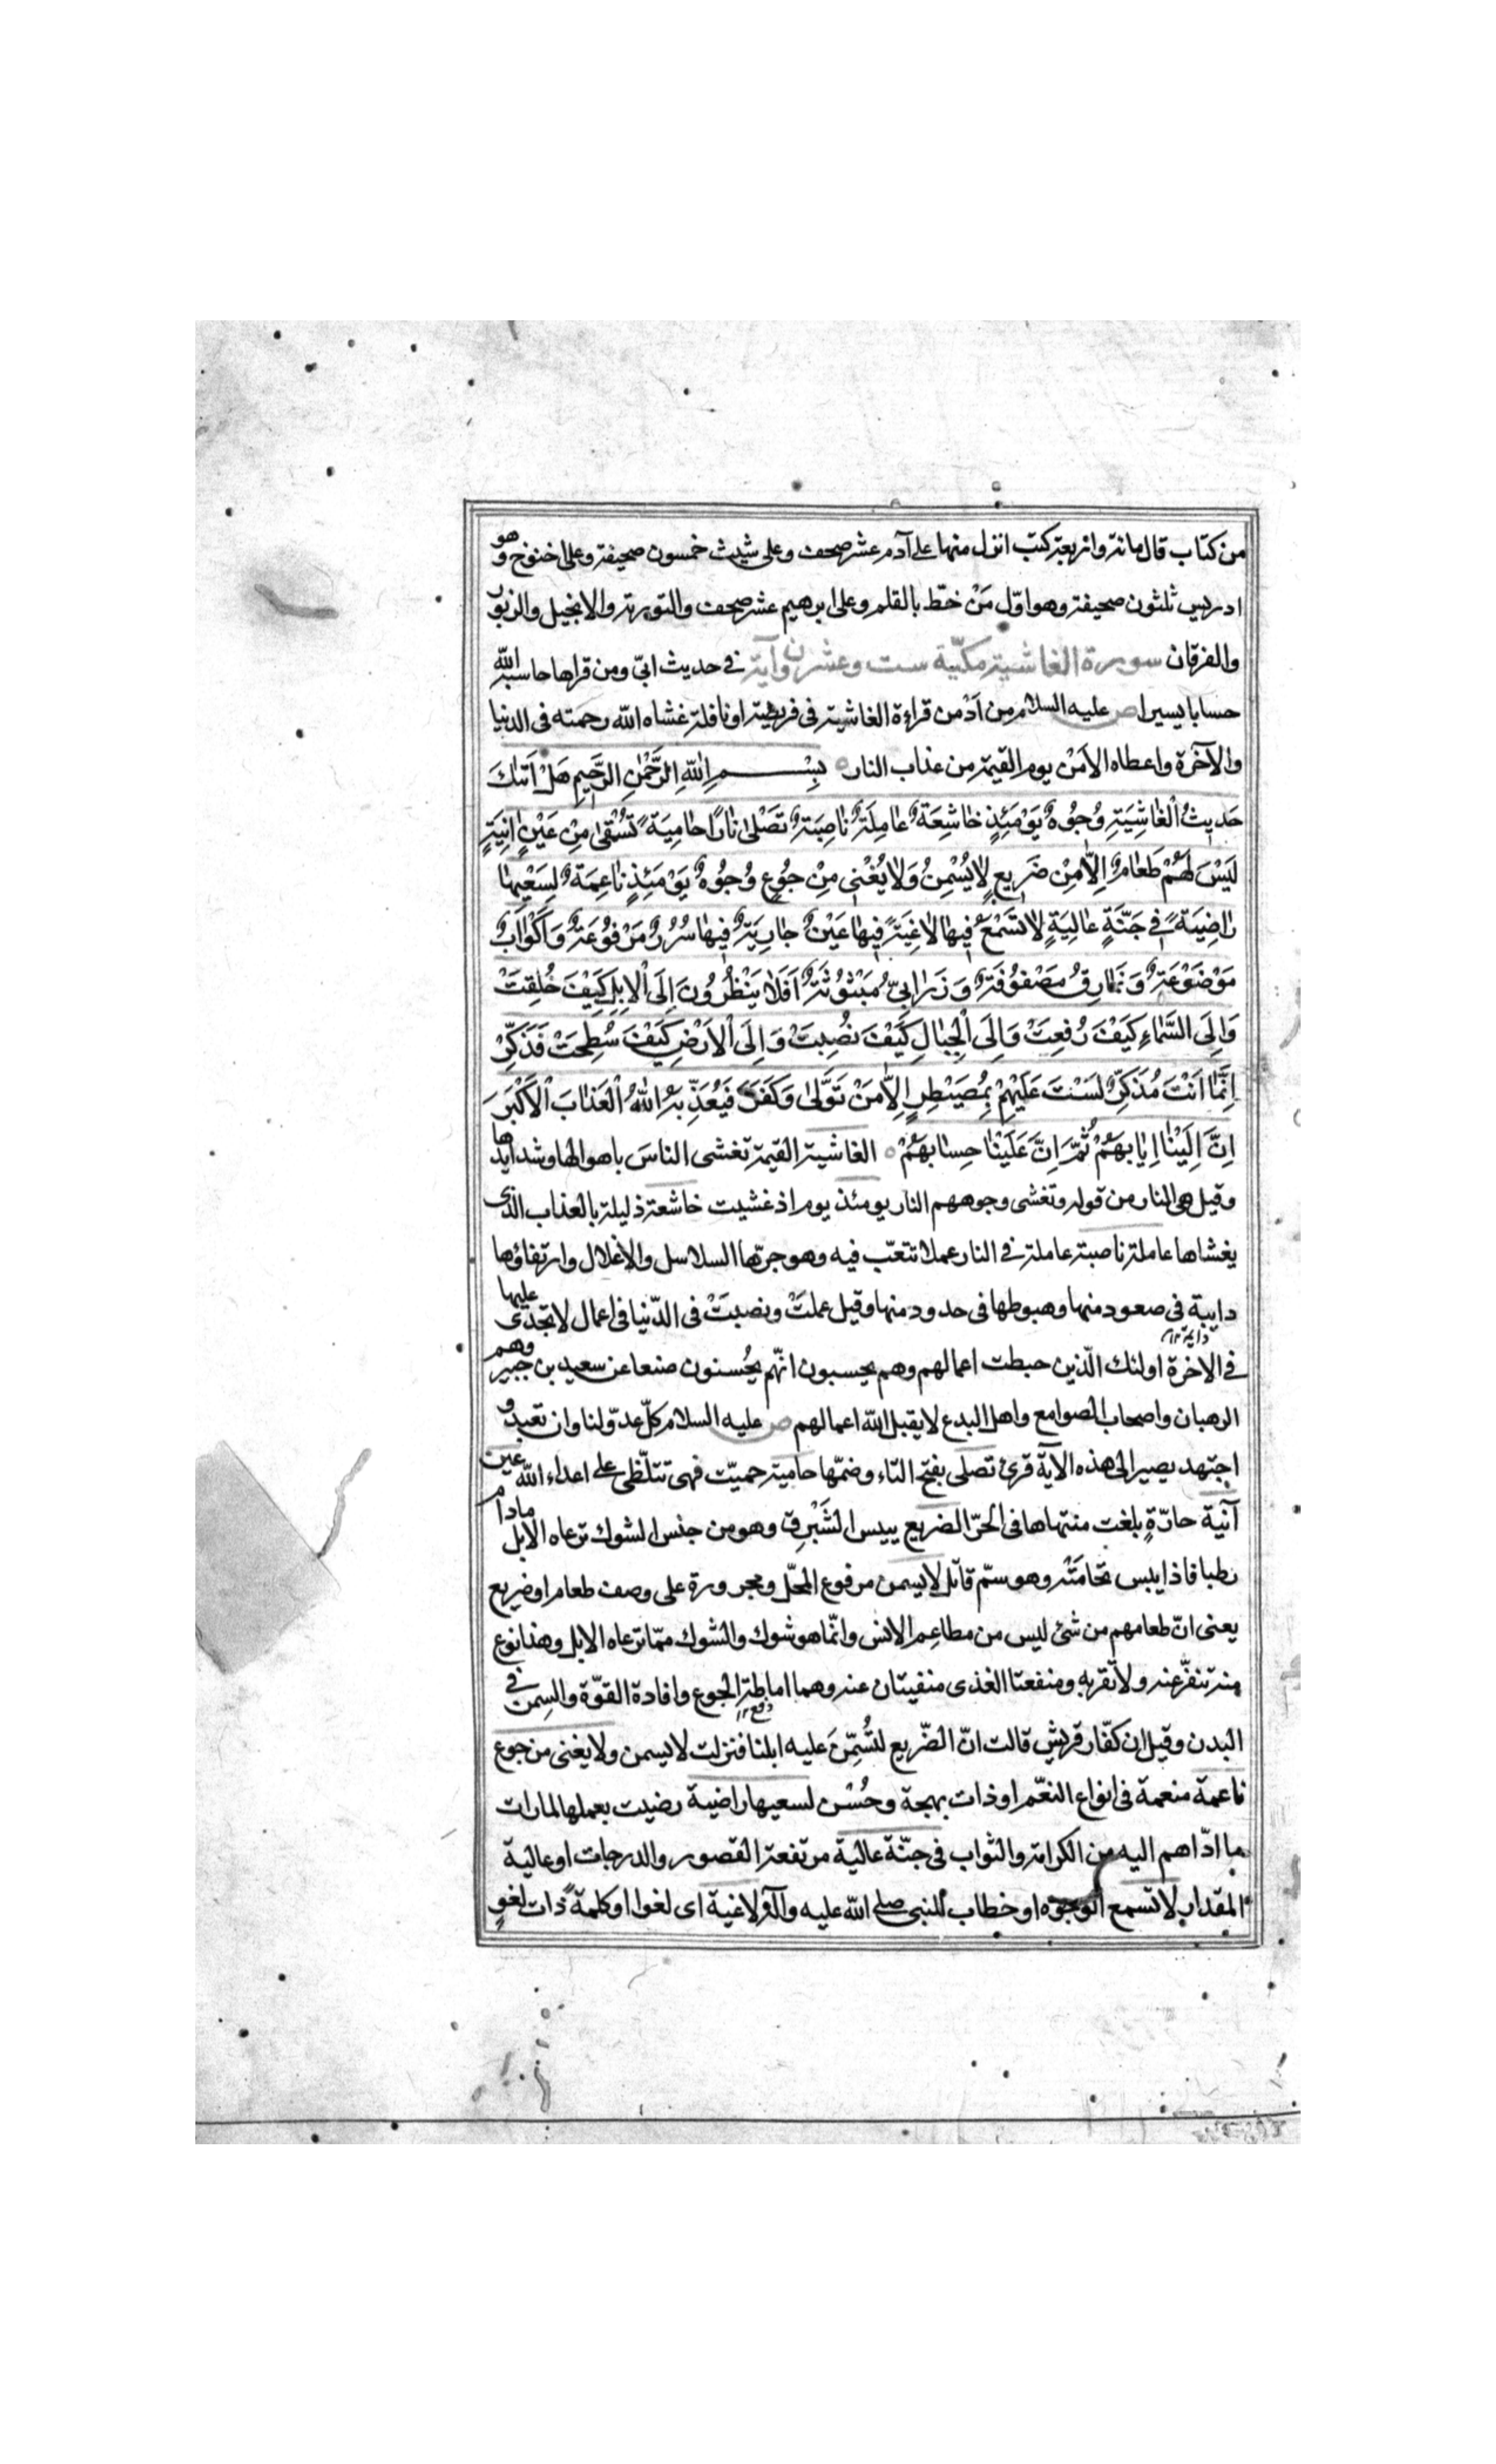 من كتاب قال مائة واربعة كتب انزل منها على آدم عشر صحف وعلى شيث خمسون صحيفة وعلى اخنوخ وهو
ادريس ثلثون صحيفة وهو اوّل مَنْ خطّ بالقلم وعلى ابرهيم عشر صحف والتورية والانجيل والزبور
والفرقان سورة الغاشية مكيّة ست وعشرون آية في حديث ابىّ ومن قراها حاسبه الله
حسابا يسيرا ص عليه السلام من آدْمن قراءة الغاشية فى فريضة او نافلة غشاه الله رحمته فى الدنيا
والآخرة واعطاه الاَمْن يوم القيمة من عذاب النار بِسْمِ اللهِ الرَّحْمٰنِ الرَّحٖيمِ هَلْ اَتٰىكَ
حَدٖيثُ الْغٰاشِيَةِ وُجُوهٌ يَوْمَئِذٍ خٰاشِعَةٌ عٰامِلَةٌ نٰاصِبَةٌ تَصْلىٰ نٰارًا حٰامِيَةً تُسْقىٰ مِنْ عَيْنٍ اٰنِيَةٍ
لَيْسَ لَهُمْ طَعٰامٌ اِلّٰا مِنْ ضَرٖيعٍ لٰا يُسْمِنُ وَلٰا يُغْنٖى مِنْ جُوعٍ وُجُوهٌ يَوْمَئِذٍ نٰاعِمَةٌ لِسَعْيِهٰا
رٰاضِيَةً فٖى جَنَّةٍ عٰالِيَةٍ لٰا تَسْمَعُ فٖيهٰا لٰاغِيَةً فٖيهٰا عَيْنٌ جٰارِيَةٌ فٖيهٰا سُرُرٌ مَرْفُوعَةٌ وَاَكْوٰابٌ
مَوْضُوعَةٌ وَنَمٰارِقُ مَصْفُوفَةٌ وَزَرٰابِىُّ مَبْثُوثَةٌ اَفَلٰا يَنْظُرُونَ اِلَى الْاِبِلِ كَيْفَ خُلِقَتْ
وَاِلَى السَّمٰاءِ كَيْفَ رُفِعَتْ وَاِلَى الْجِبٰالِ كَيْفَ نُصِبَتْ وَاِلَى الْاَرْضِ كَيْفَ سُطِحَتْ فَذَكِّرْ
اِنَّمٰا اَنْتَ مُذَكِّرٌ لَسْتَ عَلَيْهِمْ بِمُصَيْطِرٍ اِلّٰا مَنْ تَوَلّٰى وَكَفَرَ فَيُعَذِّبُهُ اللهُ الْعَذٰابَ الْاَكْبَرَ
اِنَّ اِلَيْنٰا اِيٰابَهُمْ ثُمَّ اِنَّ عَلَيْنٰا حِسٰابَهُمْ الغاشية القيمة تغشى الناسَ باهوالها وشدايدها
وقيل هى النار من قوله وتغشى وجوههم النار يومئذ يوم اذ غشيت خاشعة ذليلة بالعذاب الذى
يغشاها عاملة ناصبة عاملة في النار عملا تتعّب فيه وهو جرّها السلاسل والاغلال وارتفاؤها
دايبة فى صعود منها وهبوطها فى حدود منها وقيل عملَتْ ونصبَتْ فى الدّنيا فى اعمال لا تجدى عليها
في الآخرة اولئك الّذين حبطت اعمالهم وهم يحسبون انّهم يُحْسنون صنعا عن سعيد بن جبير وهم
الرهبان واصحاب الصوامع واهل البدع لا يقبل الله اعمالهم ص عليه السلام كلّ عدوّ لنا وان تعبد و
اجتهد يصير الى هذه الآية قرئ تصلى بفتح التاء وضمّها حامية حميّت فهى تتلظّى على اعداء الله عين
آنية حارّةٍ بلغت منتهاها فى الحرّ الضريع يبيس الشَّبْرِق وهو من جنس الشوك ترعاه الابل مادام
رطبا فاذا يبس تحامَتْه وهو سمّ قاتل لا يسمن مرفوع المحلّ ومجرورة على وصف طعام او ضريع
يعنى انّ طعامهم من شئ ليس من مطاعم الانس وانّما هو شوك والشوك ممّا ترعاه الابل وهذا نوع
منه تنفّر عنه ولا تقربه ومنفعتا الغذى منفيتان عنه وهما اماطة الجوع وافادة القوّة والسمن في
البدن وقيل ان كفّار قريش قالت انّ الضّريع لتُسمِّنَ عليه ابلنا فنزلت لا يسمن ولا يغنى من جوع
ناعمة منعمة فى انواع النعّم او ذات بهجة وحُسْن لسعيها راضية رضيت بعملها لما رات
ما ادّاهم اليه من الكرامة والثواب فى جنّة عالية مرتفعة القصور والدرجات او عالية
المقدار لا تسمع الوجوه او خطاب للنبى صلى الله عليه وآله لاغية اى لغوا او كلمة ذات لغوٍ